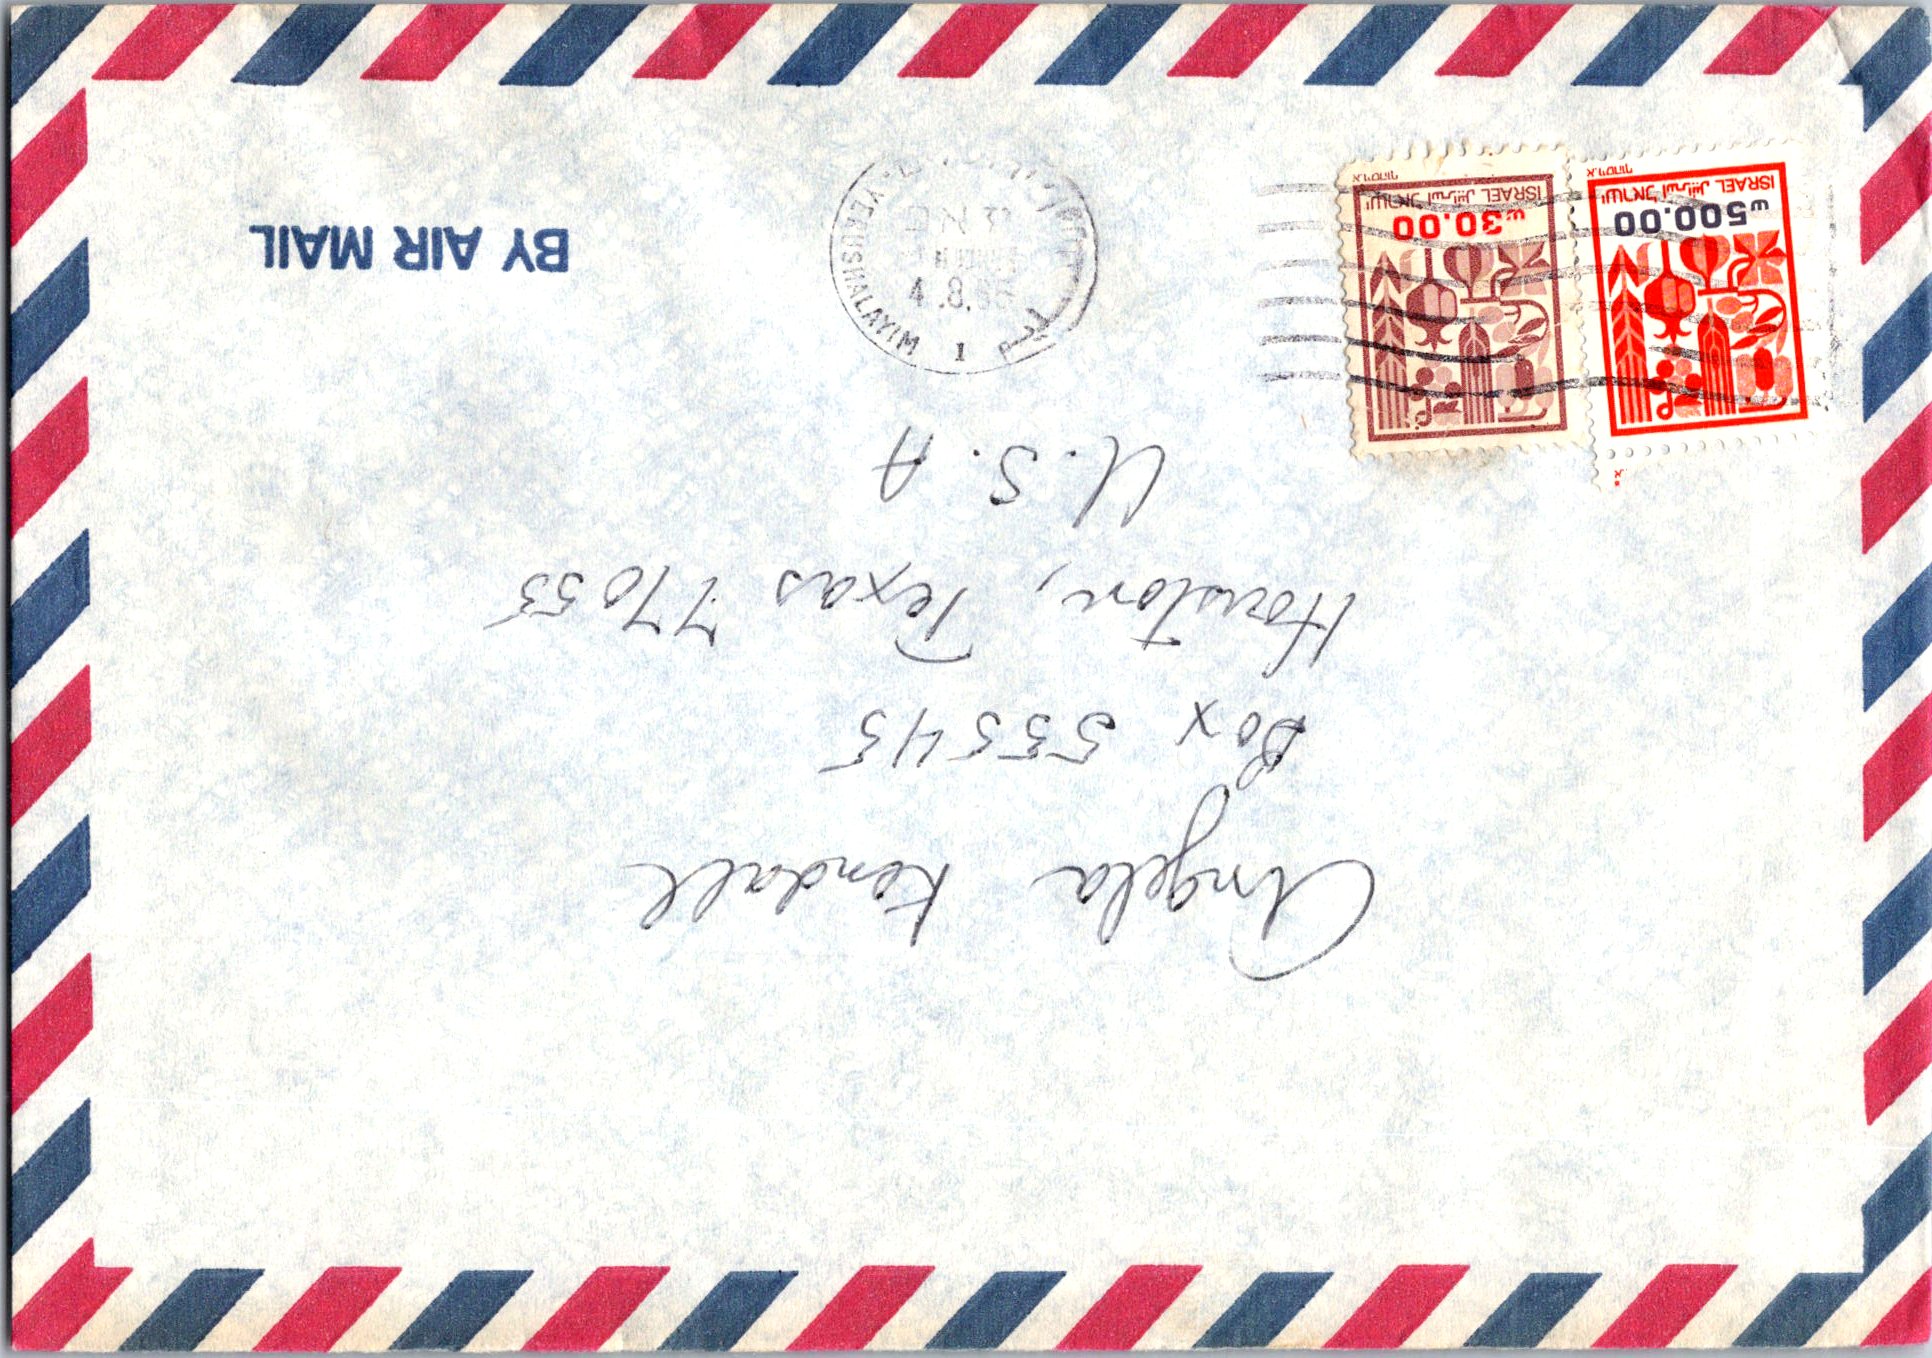 BY AIR MAIL
YERUSHALAYIM
1
4.8.85
ISRAEL اسرائيل ישראל
30.00
ISRAEL اسرائيل ישראל
500.00
Angela Kendall
Box 55545
Houston, Texas 77055
U.S.A